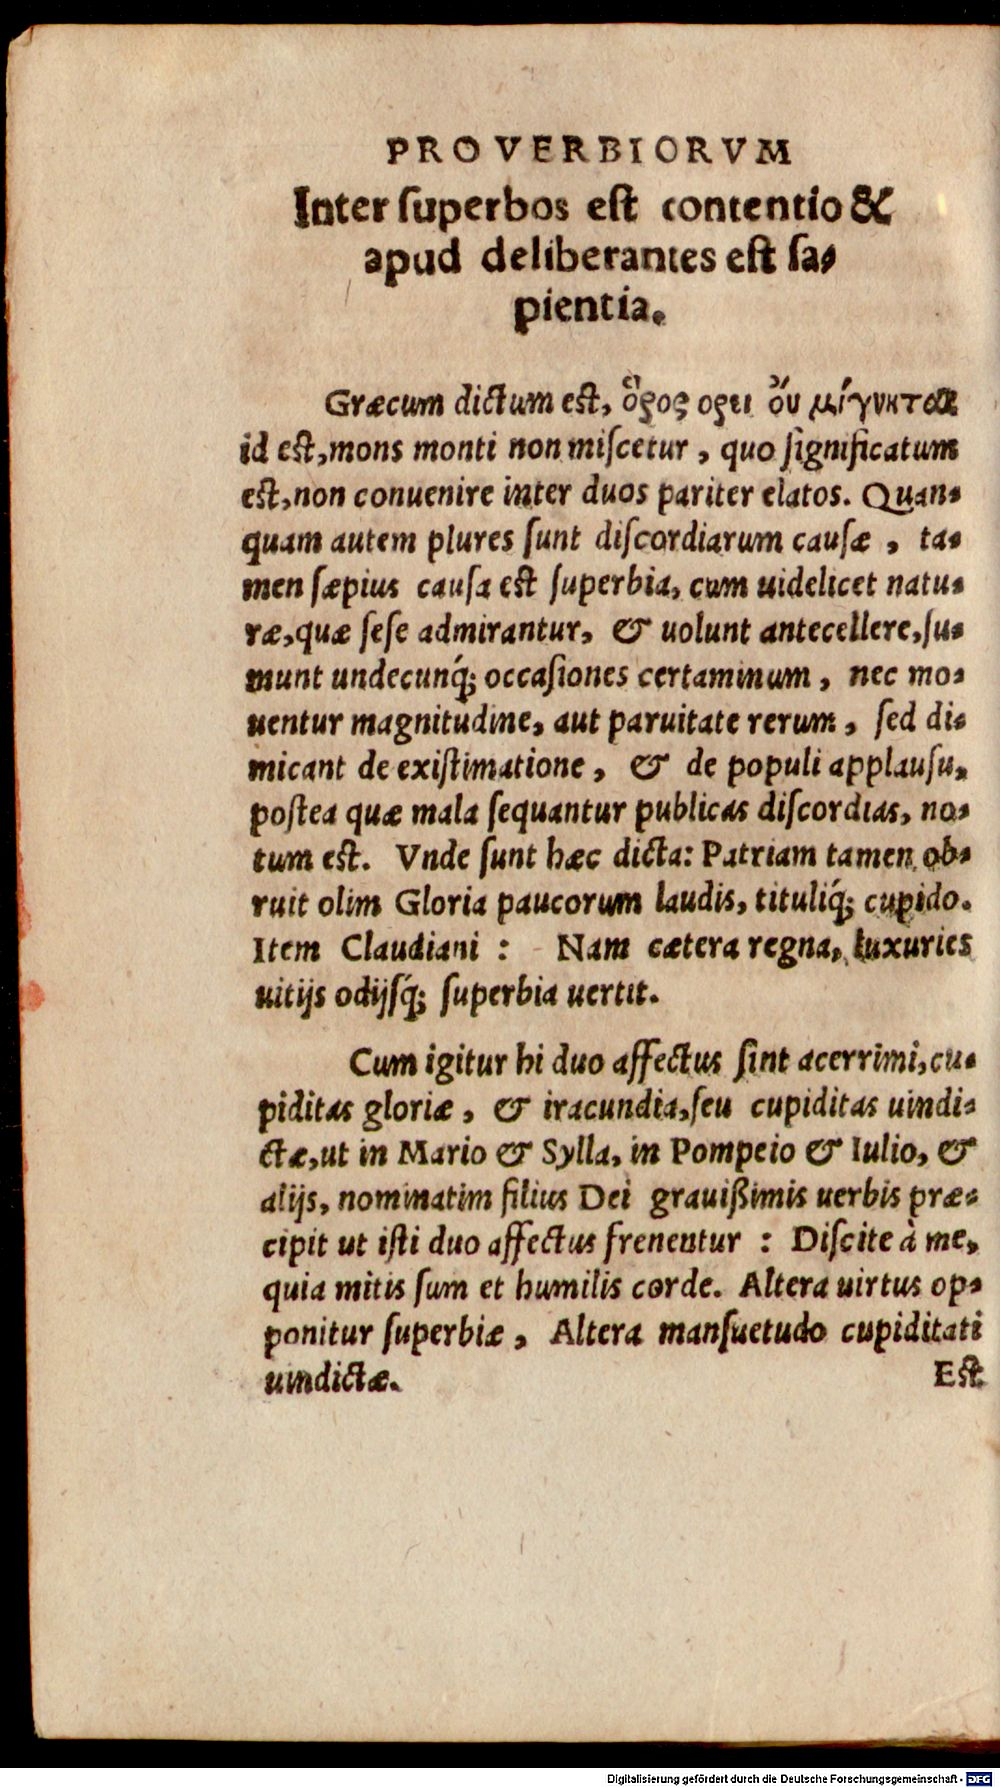 PROVERBIORVM
Inter ſuperbos eſt contentio &
apud deliberantes eſt ſa-
pientia.
Græcum dictum est, ὄρος ορει ὄυ μίγνυται
id est, mons monti non miſcetur, quo ſignificatum
est, non conuenire inter duos pariter elatos. Quan-
quam autem plures ſunt diſcordiarum cauſæ, ta-
men ſæpius cauſa est ſuperbia, cum uidelicet natu-
ræ, quæ ſeſe admirantur, & uolunt antecellere, ſu-
munt undecunq́; occaſiones certaminum, nec mo-
uentur magnitudine, aut paruitate rerum, ſed di-
micant de exiſtimatione, & de populi applauſu,
poſtea quæ mala ſequantur publicas diſcordias, no-
tum est. Vnde ſunt hæc dicta: Patriam tamen ob-
ruit olim Gloria paucorum laudis, tituliq́; cupido.
Item Claudiani: Nam cætera regna, luxuries
uitijs odijſq́; ſuperbia uertit.
Cum igitur hi duo affectus ſint acerrimi, cu-
piditas gloriæ, & iracundia, ſeu cupiditas uindi-
ctæ, ut in Mario & Sylla, in Pompeio & Iulio, &
alijs, nominatim filius Dei grauißimis uerbis præ-
cipit ut iſti duo affectus frenentur: Diſcite à me,
quia mitis ſum et humilis corde. Altera uirtus op-
ponitur ſuperbiæ, Altera manſuetudo cupiditati
uindictæ.
Est
Digitalisierung gefördert durch die Deutsche Forschungsgemeinschaft - DFG